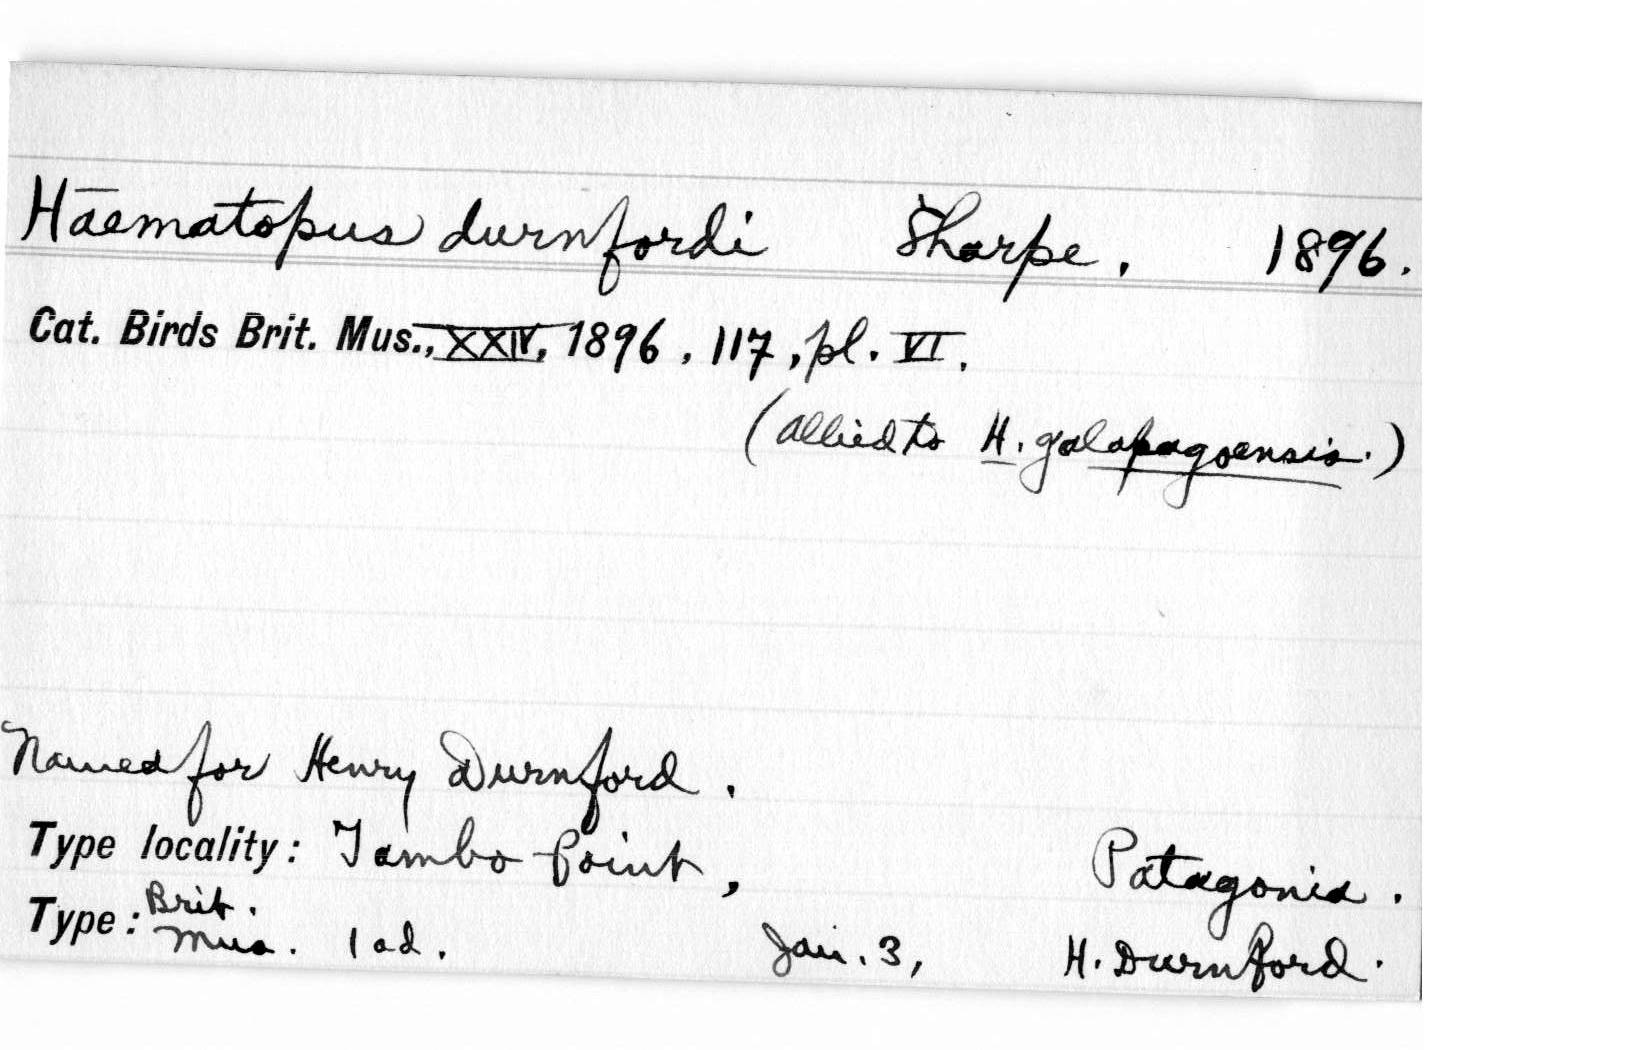 Haematopus durnfordi Sharpe. 1896.
Cat. Birds Brit. Mus., XXIV, 1896, 117, pl. VI.
(allied to H. galapagoensis.)
Named for Henry Durnford.
Type locality: Tambo Point, Patagonia.
Type: Brit. Mus. 1 ad. Jan. 3, H. Durnford.